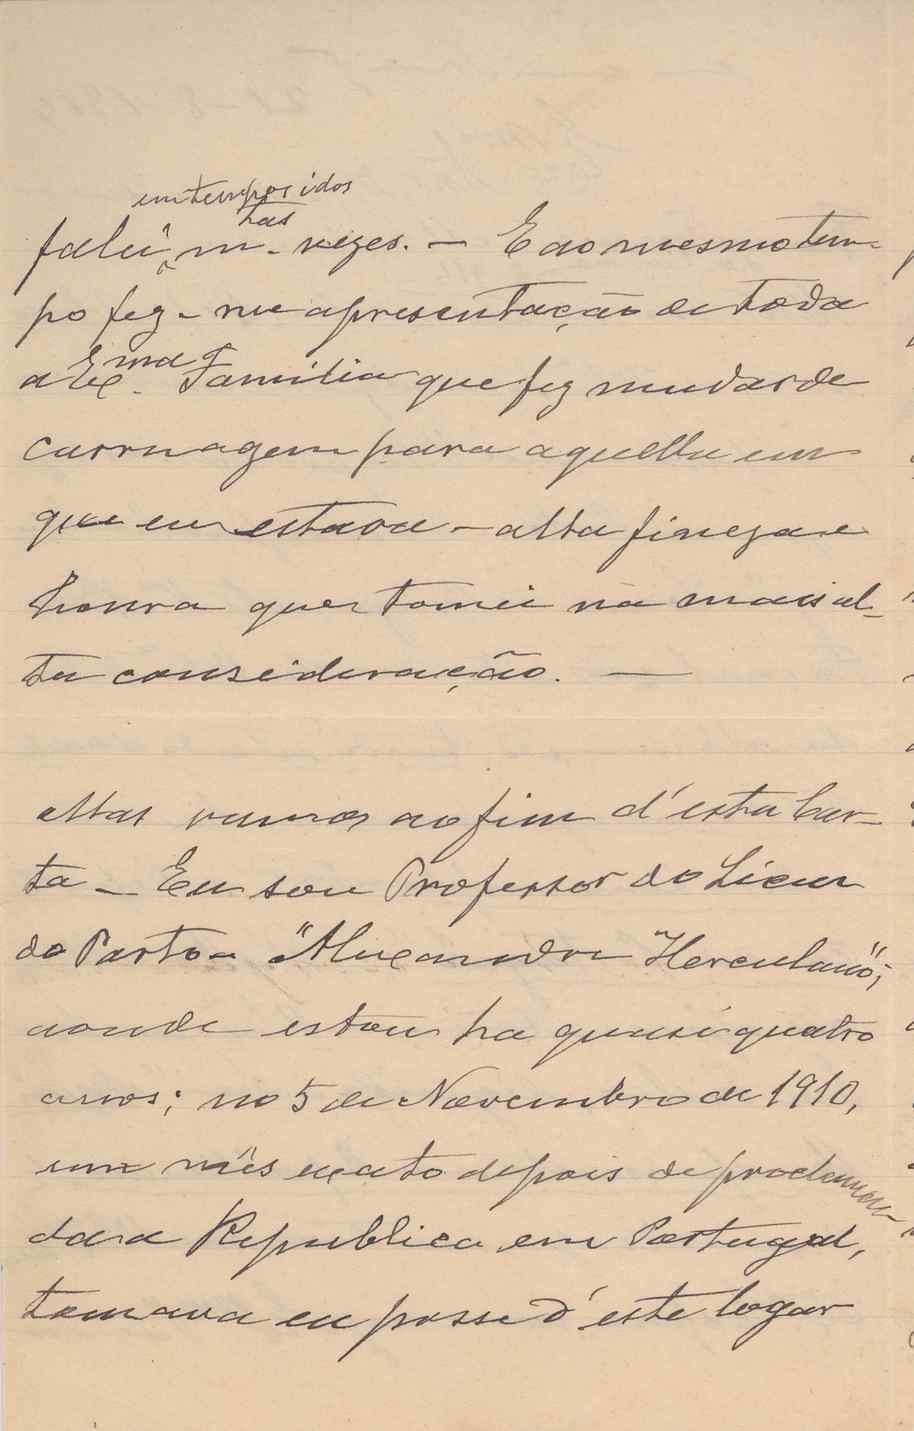 em tempos idos
falei, m.tas vezes. — E ao mesmo tem-
po fez-me apresentação de toda
a Ex.ma Familia que fez mudar de
carruagem para aquella em
que eu estava — alta fineza e
honra que tomei na mais al-
ta consideração. —
Mas vamos ao fim d'esta Car-
ta — Eu sou Professor do Liceu
do Porto — "Alexandre Herculano";
aonde estou ha quasi quatro
annos; no 5 de Novembro de 1910,
um mês exato depois de proclama-
da a Republica em Portugal,
tomava eu posse d'este logar